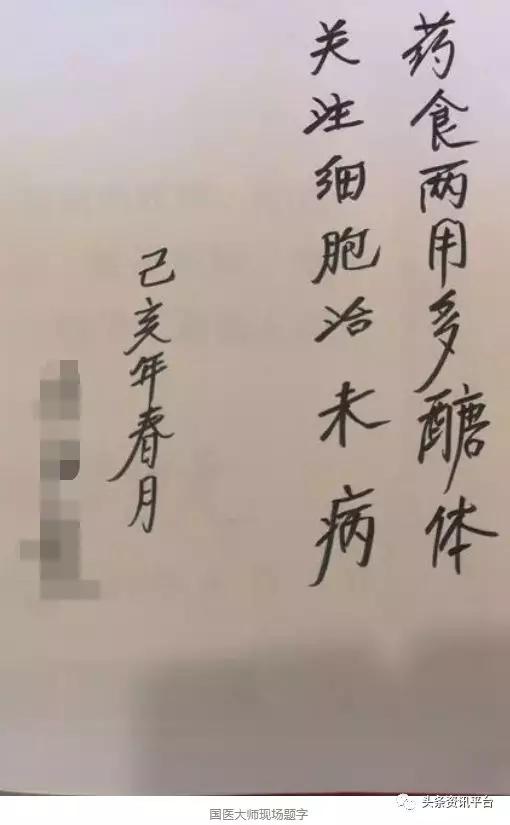 药食两用多醣体
关注细胞治未病
己亥年春月
国医大师现场题字
头条资讯平台